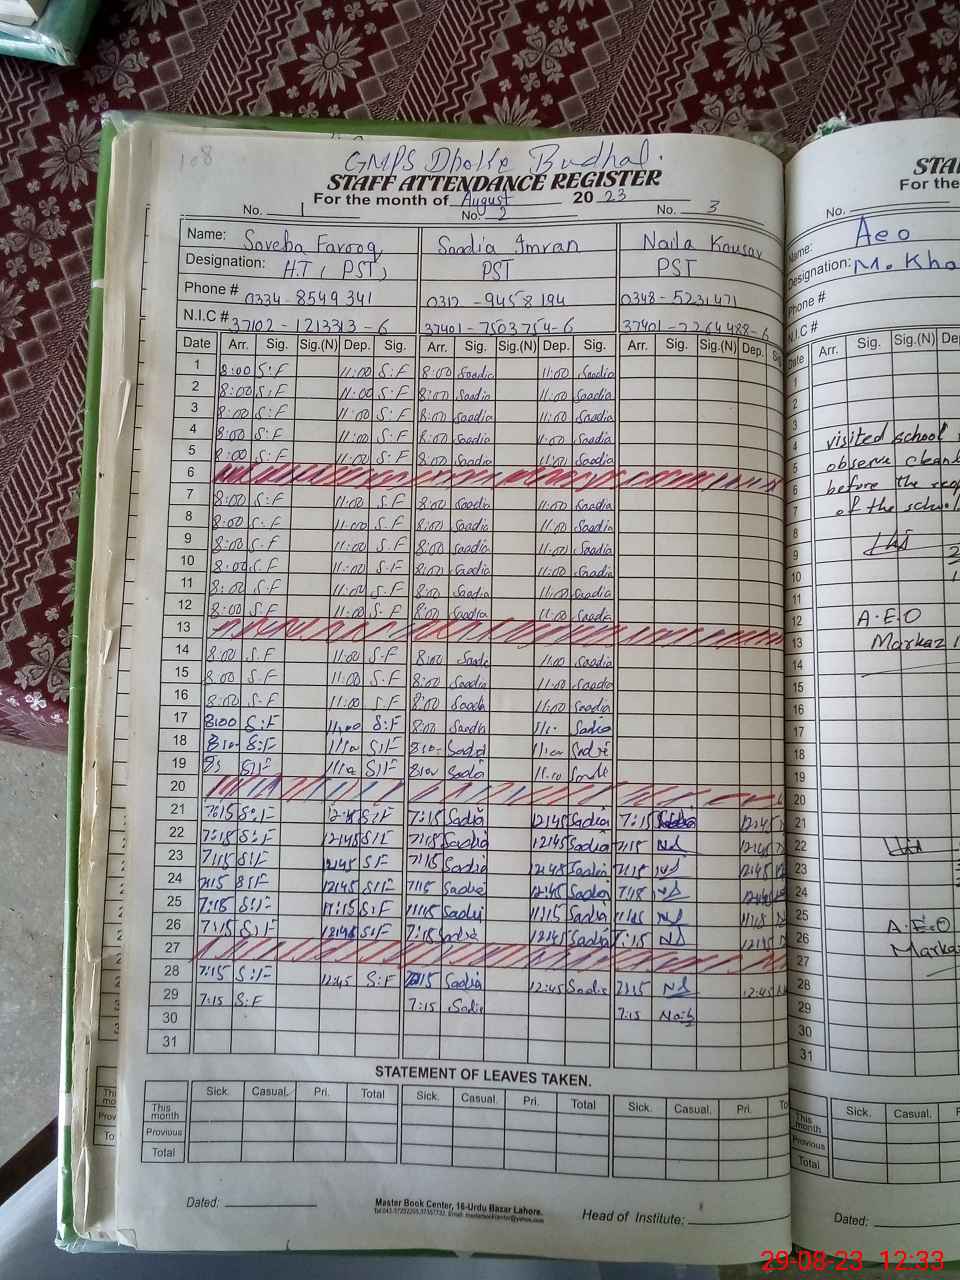 108
GMPS Dhoke Budhal.
STAFF ATTENDANCE REGISTER
For the month of August 2023
No. 1 No. 2 No. 3
Name: Saveba Farooq Saadia Imran Naila Kousar
Designation: H.T ( PST ) PST PST
Phone # 0334-8549341 0312-9458194 0348-5231471
N.I.C # 37102-1213313-6 37401-7503754-6 37401-2264488-6
Date Arr. Sig. Sig.(N) Dep. Sig. Arr. Sig. Sig.(N) Dep. Sig. Arr. Sig. Sig.(N) Dep.
1 8:00 S:F 11:00 S:F 8:00 Saadia 11:00 Saadia
2 8:00 S:F 11:00 S:F 8:00 Saadia 11:00 Saadia
3 8:00 S:F 11:00 S:F 8:00 Saadia 11:00 Saadia
4 8:00 S:F 11:00 S:F 8:00 Saadia 11:00 Saadia
5 8:00 S:F 11:00 S:F 8:00 Saadia 11:00 Saadia
6
7 8:00 S.F 11:00 S.F 8:00 Saadia 11:00 Saadia
8 8:00 S.F 11:00 S.F 8:00 Saadia 11:00 Saadia
9 8:00 S.F 11:00 S.F 8:00 Saadia 11:00 Saadia
10 8:00 S.F 11:00 S.F 8:00 Saadia 11:00 Saadia
11 8:00 S.F 11:00 S.F 8:00 Saadia 11:00 Saadia
12 8:00 S.F 11:00 S.F 8:00 Saadia 11:00 Saadia
13
14 8:00 S.F 11:00 S.F 8:00 Saadia 11:00 Saadia
15 8:00 S.F 11:00 S.F 8:00 Saadia 11:00 Saadia
16 8:00 S.F 11:00 S.F 8:00 Saadia 11:00 Saadia
17 8:00 S:F 11:00 S:F 8:00 Saadia 11: Sadia
18 S:F S:F Sadia
19 S:F S:F Sadia 11:00
20
21 7:15 S:F 12:45 S:F 7:15 Sadia 12:45 Sadia 7:15 12:45
22 7:15 S:F 12:45 S:F 7:15 Sadia 12:45 Sadia 7:15 NS 12:45
23 7:15 S:F 12:45 S:F 7:15 Sadia 12:45 Sadia 7:15 NS 12:45
24 7:15 S:F 12:45 S:F 7:15 Sadia 12:45 Sadia 7:15 NS 12:45
25 7:15 S:F 11:15 S:F Sadia 11:15 Sadia NS 11:15
26 7:15 S:F 12:45 S:F 7:15 Sadia 12:45 Sadia 7:15 NS 12:45
27
28 7:15 S:F 12:45 S:F 7:15 Sadia 12:45 Sadia 7:15 NS 12:45
29 7:15 S:F 7:15 Sadia 7:15
30
31
STATEMENT OF LEAVES TAKEN.
Sick. Casual. Pri. Total Sick. Casual. Pri. Total Sick. Casual. Pri.
This month
Previous
Total
Dated:
Master Book Center, 16-Urdu Bazar Lahore.
Head of Institute:
For the
No.
Name: Aeo
Designation: M. Kha
Phone #
N.I.C #
Date Arr. Sig. Sig.(N)
1
2
3
4 visited school
5 observe clean
6 before the
7 of the school
8
9
10
11
12 A.E.O
13 Markaz
14
15
16
17
18
19
20
21
22
23
24
25 A.E.O
26 Marka
27
28
29
30
31
Sick. Casual.
This month
Previous
Total
Dated:
29-08-23 12:33